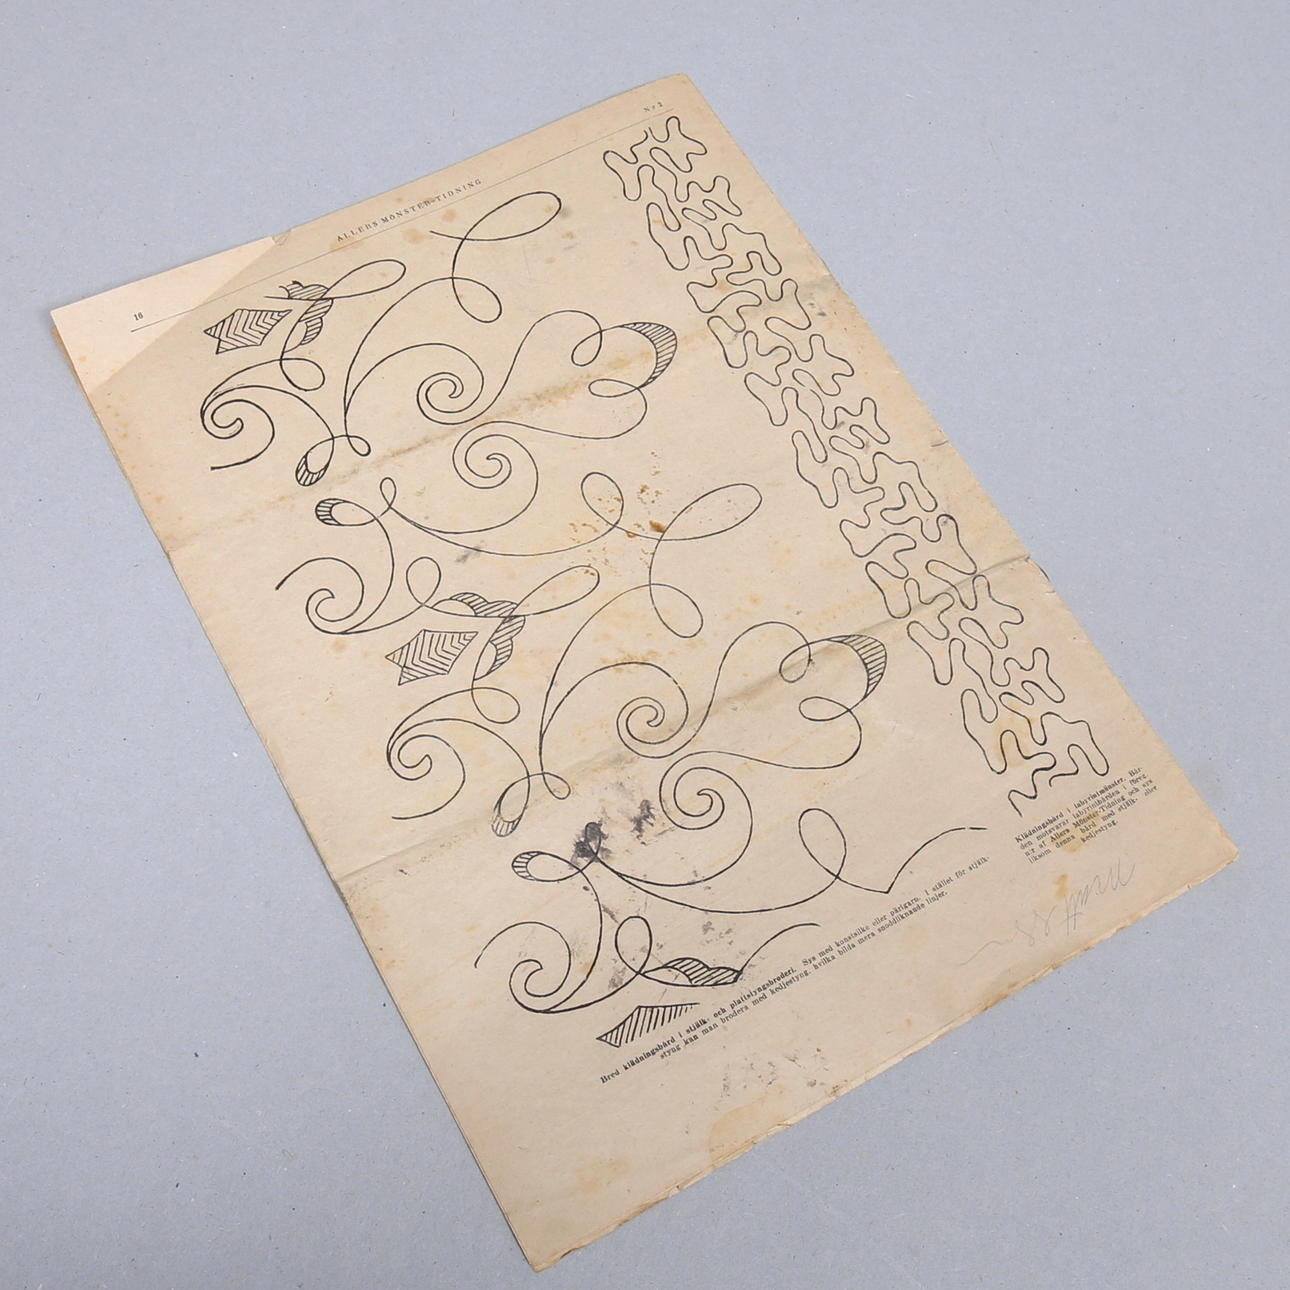 16
ALLERS MÖNSTER-TIDNING
Nr 2
Klädningsbård i labyrintmönster. Bår-
den motsvarar labyrintbården i förra
n:r af Allers Mönster-Tidning och sys
liksom denna bård med stjälk- eller
kedjestyng.
Bred klädningsbård i stjälk- och plattstyngsbroderi. Sys med konstsilke eller pärlgarn. I stället för stjälk-
styng kan man brodera med kedjestyng, hvilka bilda mera snoddliknande linjer.